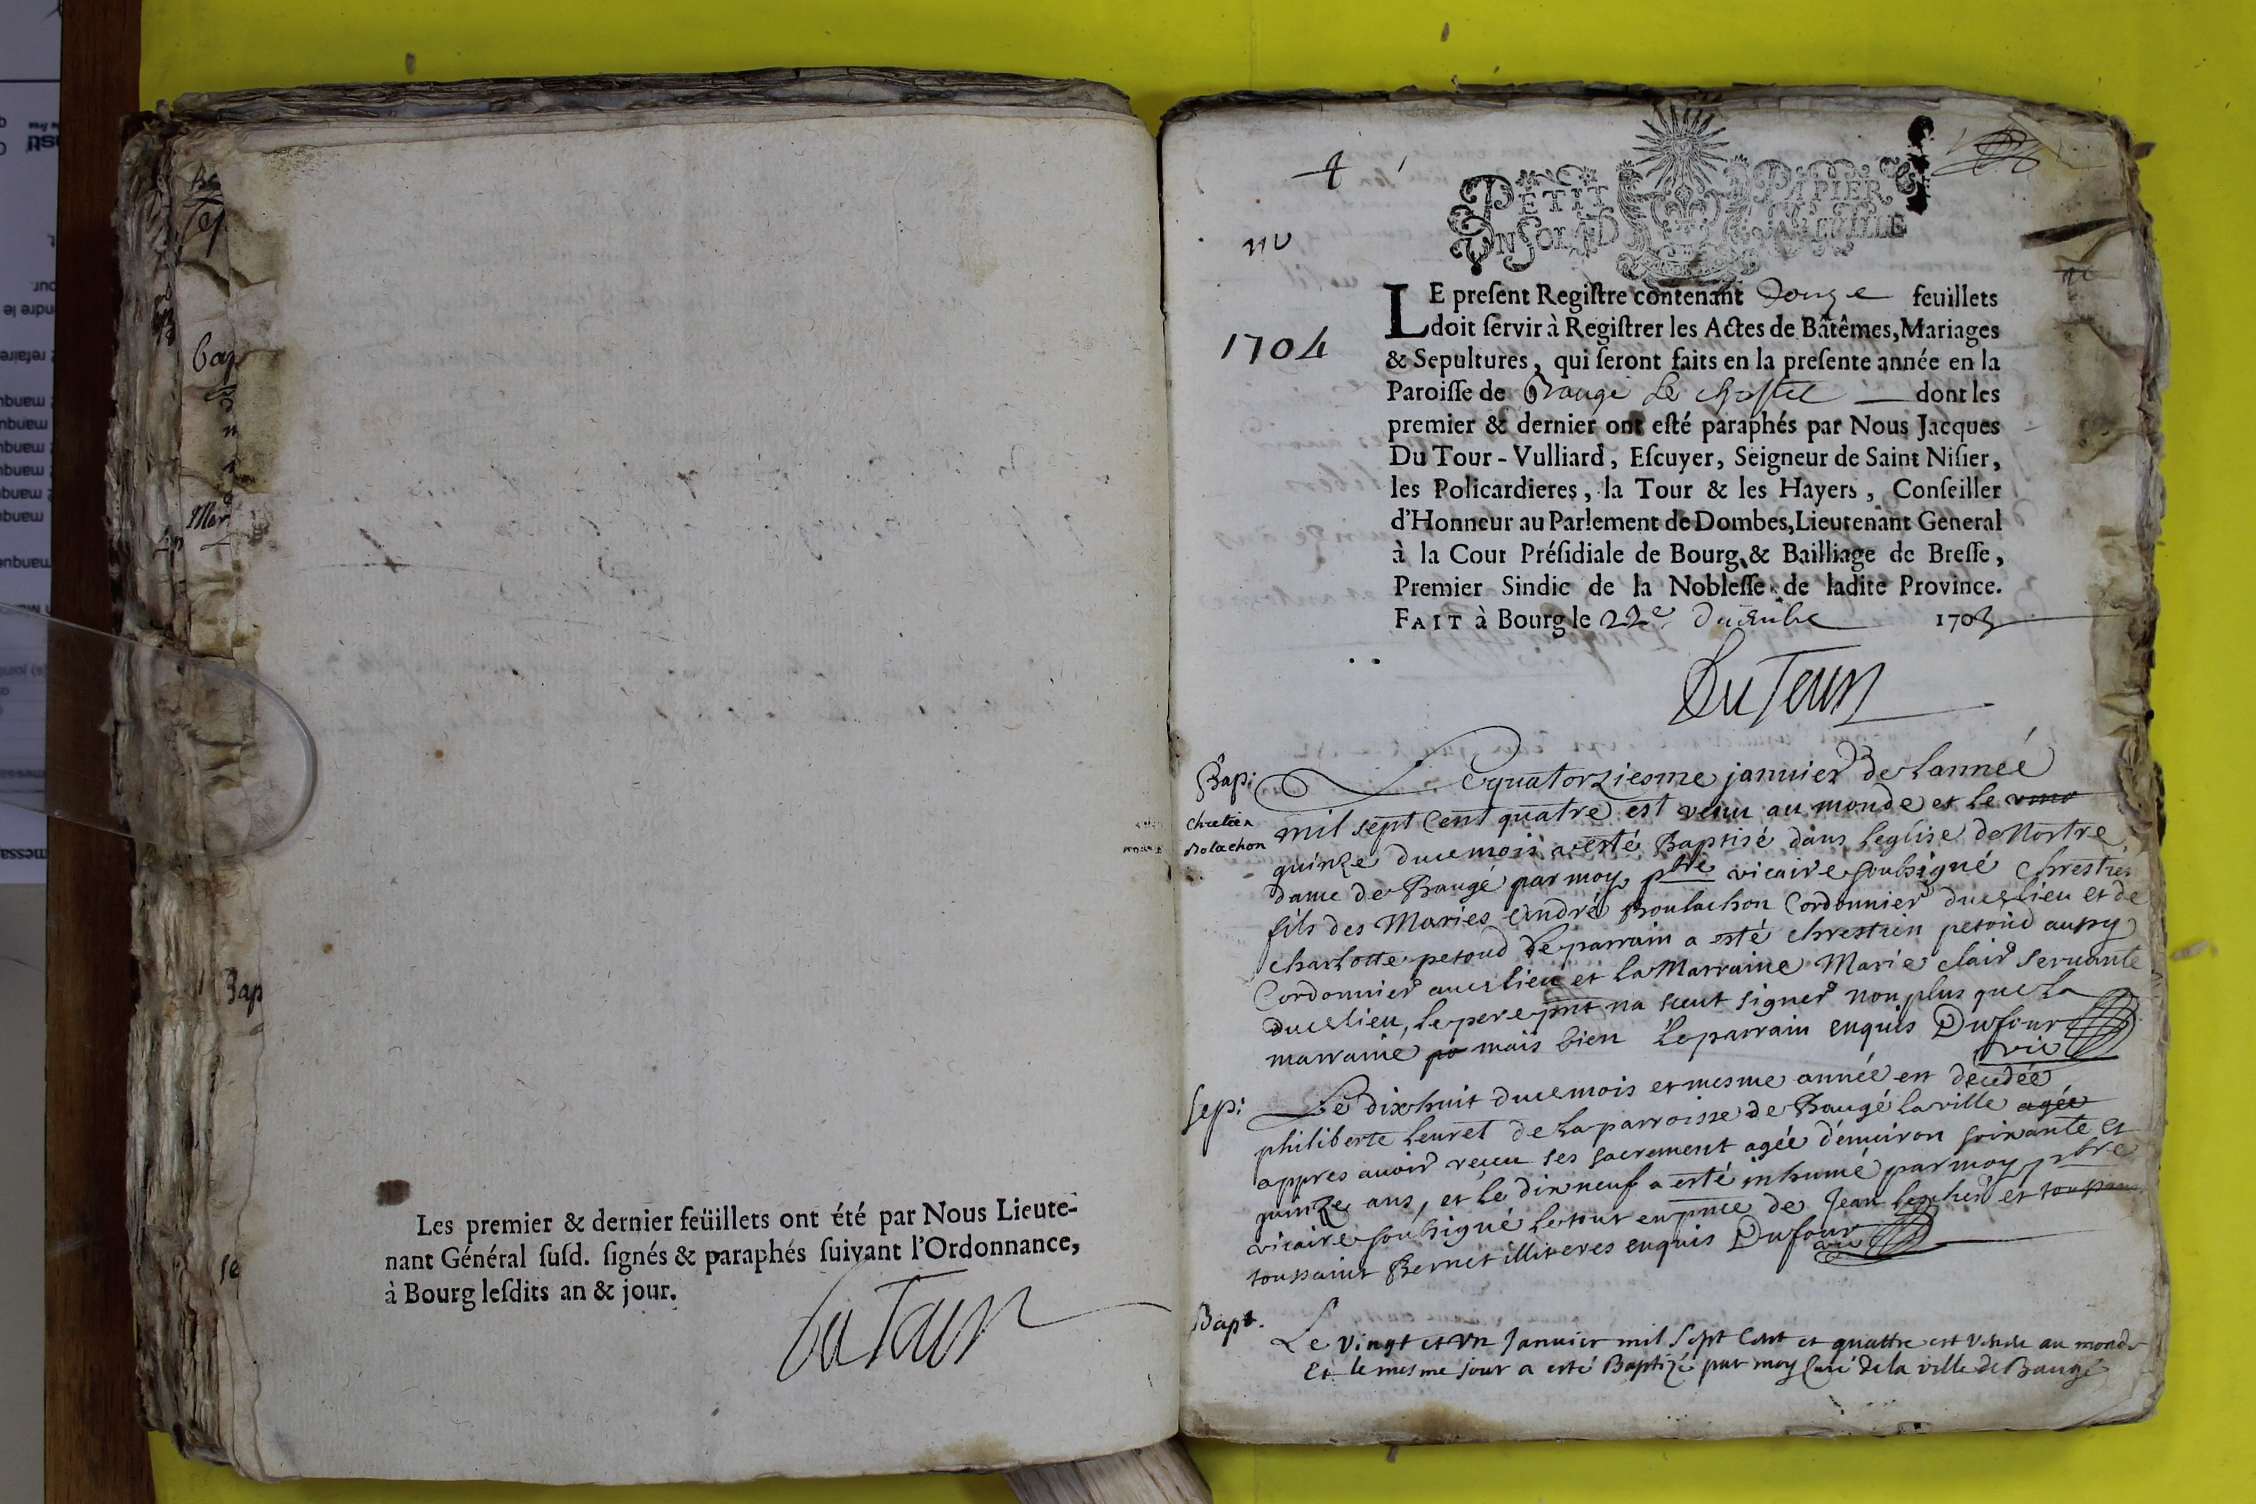 Les premier & dernier feüillets ont été par Nous Lieute-
nant Général susd. signés & paraphés suivant l'Ordonnance,
à Bourg lesdits an & jour.
DuTour
PETIT PAPIER
UN SOL LA FEUILLE
1704
LE present Registre contenant douze feuillets
doit servir à Registrer les Actes de Bâtêmes, Mariages
& Sepultures, qui seront faits en la presente année en la
Paroisse de Baugé Le chastel dont les
premier & dernier ont esté paraphés par Nous Jacques
Du Tour-Vulliard, Escuyer, Seigneur de Saint Nisier,
les Policardieres, la Tour & les Hayers, Conseiller
d'Honneur au Parlement de Dombes, Lieutenant General
à la Cour Présidiale de Bourg, & Bailliage de Bresse,
Premier Sindic de la Noblesse de ladite Province.
FAIT à Bourg le 22e decembre 1703
DuTour
Bap:
chretien
Bolachon
Le quatorziesme janvier de lannée
mil sept cent quatre est venu au monde et le
quinze du ce mois a esté Baptisé dans leglise de Nostre
dame de Baugé par moy pbre vicaire soubsigné chrestien
fils des Maries André Boulachon Cordonnier duce lieu et de
charlotte peroud le parrain a esté chrestien peroud aussy
Cordonnier auce lieu et la Marraine Marie clair servante
duce lieu, le pere pnt na sceut signer non plus que la
marraine mais bien le parrain enquis Dufour
vic
Sep:
Le dixhuit duce mois et mesme année est decedée
philiberte leuret de la parroisse de Baugé la ville agée
appres avoir reçeu ses sacrement agée denviron soixante et
quinze ans, et le dixneuf a esté inhumé par moy pbre
vicaire soubsigné le tout en pnce de Jean et
toussaint Bernet illiteres enquis Dufour
vic
Bapt.
Le vingt et vn Janvier mil sept Cent et quattre est venue au monde
Et le mesme jour a esté Baptizé par moy Curé de la ville de Baugé